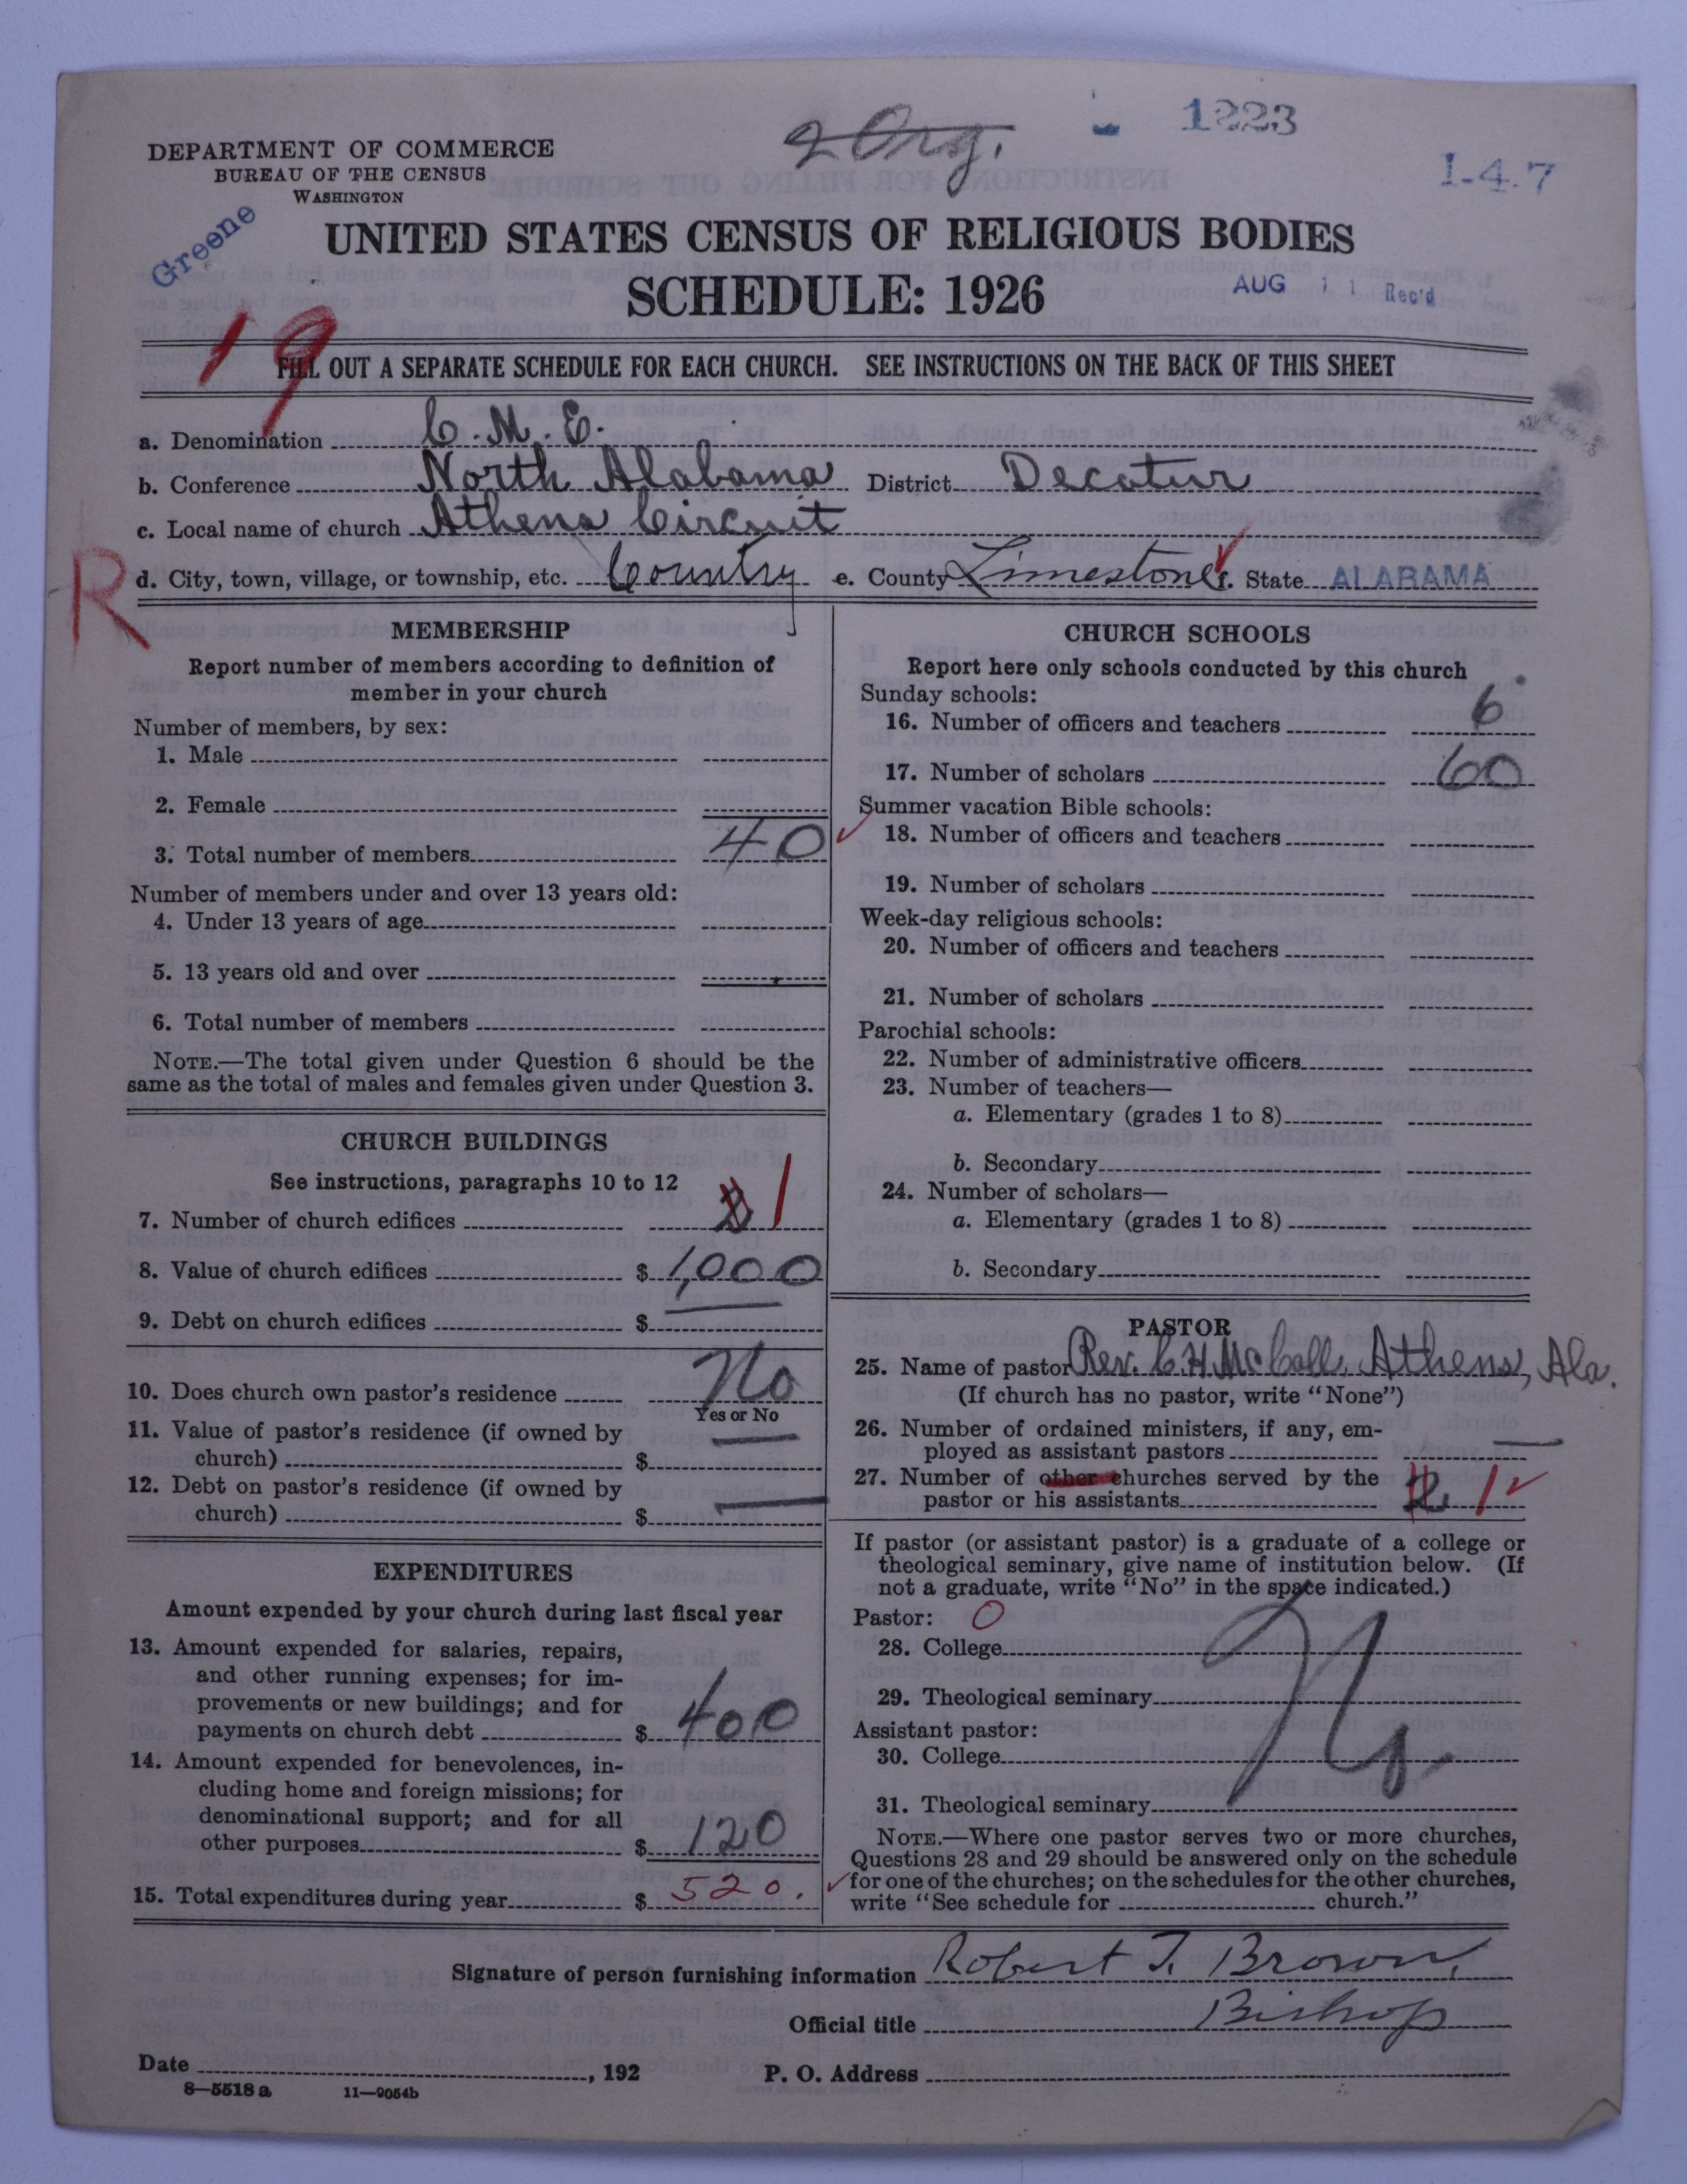 2 Org.
1223
1-4.7
DEPARTMENT OF COMMERCE
BUREAU OF THE CENSUS
WASHINGTON
Greene
UNITED STATES CENSUS OF RELIGIOUS BODIES
SCHEDULE: 1926
AUG 11 Rec'd
19
FILL OUT A SEPARATE SCHEDULE FOR EACH CHURCH. SEE INSTRUCTIONS ON THE BACK OF THIS SHEET
a. Denomination C. M. E.
b. Conference North Alabama District Decatur
c. Local name of church Athens Circuit
R
d. City, town, village, or township, etc. Country e. County Limestone f. State ALABAMA
MEMBERSHIP
Report number of members according to definition of
member in your church
Number of members, by sex:
1. Male
2. Female
3. Total number of members 40
Number of members under and over 13 years old:
4. Under 13 years of age
5. 13 years old and over
6. Total number of members
NOTE.—The total given under Question 6 should be the
same as the total of males and females given under Question 3.
CHURCH BUILDINGS
See instructions, paragraphs 10 to 12
7. Number of church edifices 2 1
8. Value of church edifices $ 1,000
9. Debt on church edifices $
10. Does church own pastor's residence No
Yes or No
11. Value of pastor's residence (if owned by
church) $ —
12. Debt on pastor's residence (if owned by
church) $ —
EXPENDITURES
Amount expended by your church during last fiscal year
13. Amount expended for salaries, repairs,
and other running expenses; for im-
provements or new buildings; and for
payments on church debt $ 400
14. Amount expended for benevolences, in-
cluding home and foreign missions; for
denominational support; and for all
other purposes $ 120
15. Total expenditures during year $ 520.
CHURCH SCHOOLS
Report here only schools conducted by this church
Sunday schools:
16. Number of officers and teachers 6
17. Number of scholars 60
Summer vacation Bible schools:
18. Number of officers and teachers
19. Number of scholars
Week-day religious schools:
20. Number of officers and teachers
21. Number of scholars
Parochial schools:
22. Number of administrative officers
23. Number of teachers—
a. Elementary (grades 1 to 8)
b. Secondary
24. Number of scholars—
a. Elementary (grades 1 to 8)
b. Secondary
PASTOR
25. Name of pastor Rev. C. H. McCall, Athens, Ala.
(If church has no pastor, write "None")
26. Number of ordained ministers, if any, em-
ployed as assistant pastors —
27. Number of other churches served by the
pastor or his assistants 2 1
If pastor (or assistant pastor) is a graduate of a college or
theological seminary, give name of institution below. (If
not a graduate, write "No" in the space indicated.)
Pastor: 0
28. College No
29. Theological seminary
Assistant pastor:
30. College
31. Theological seminary
NOTE.—Where one pastor serves two or more churches,
Questions 28 and 29 should be answered only on the schedule
for one of the churches; on the schedules for the other churches,
write "See schedule for church."
Signature of person furnishing information Robert T. Brown,
Official title Bishop
Date , 192 P. O. Address
8—5518 a 11—9054b